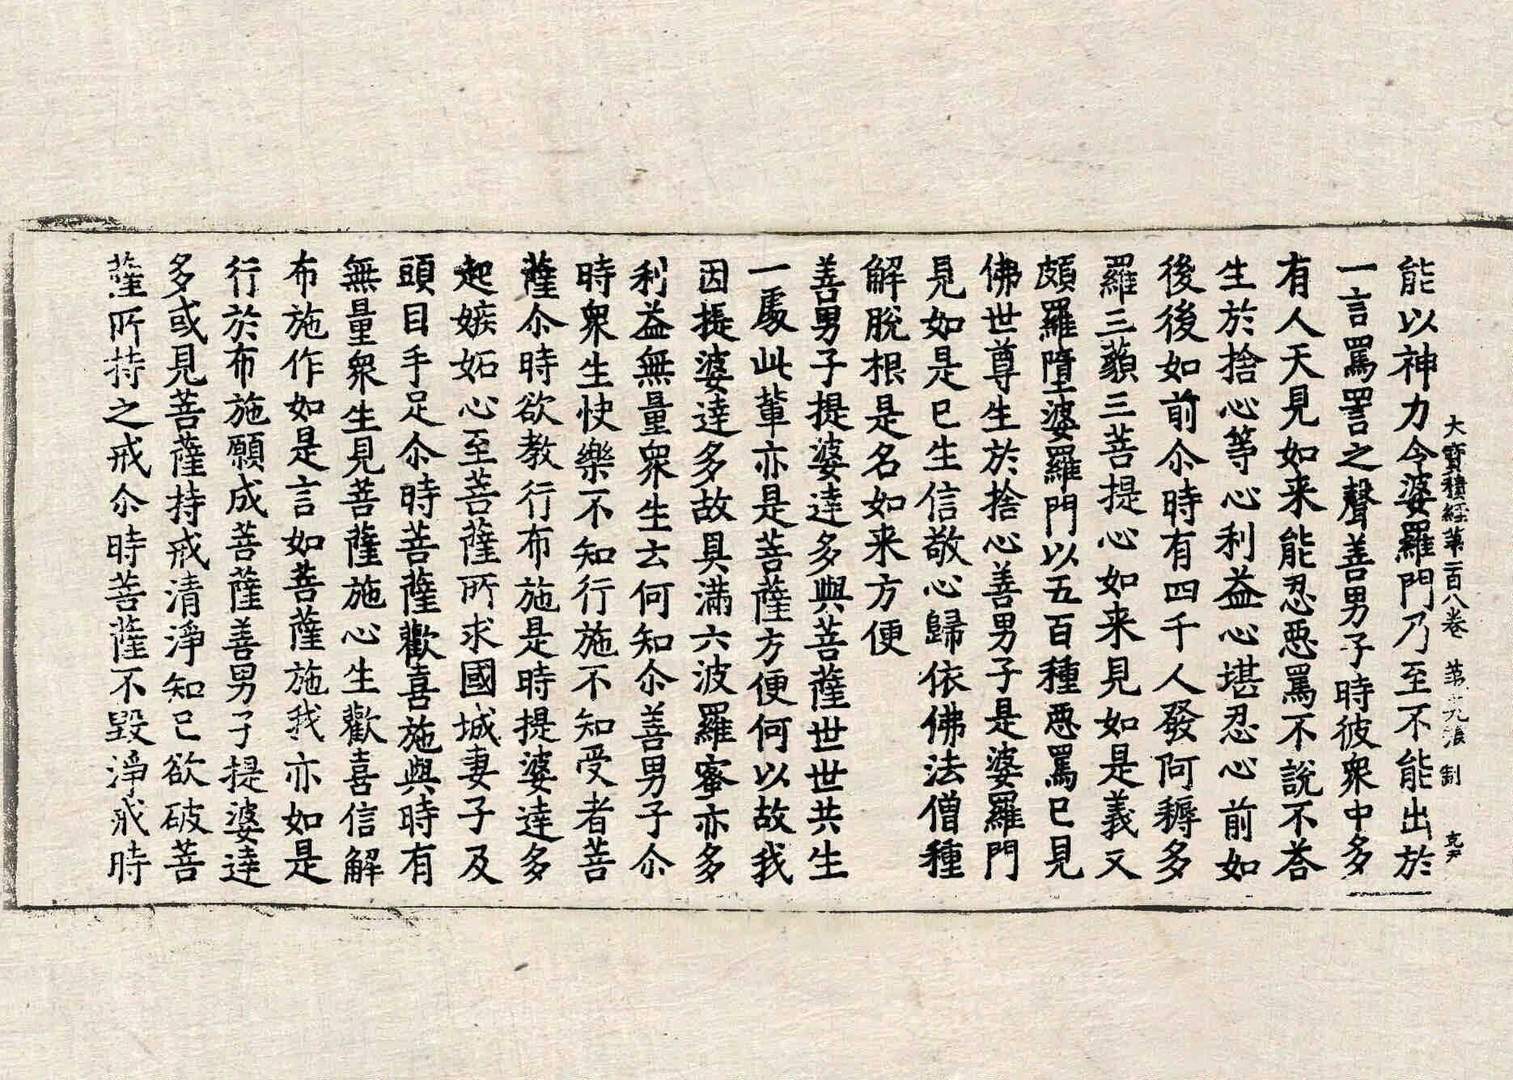 大寶積經第一百八卷 第十九張 制 克尹
能以神力今婆羅門乃至不能出於
一言罵詈之聲善男子時彼衆中多
有人天見如来能忍惡罵不說不荅
生於捨心等心利益心堪忍心前如
後後如前尒時有四千人發阿耨多
羅三藐三菩提心如来見如是義又
頗羅墮婆羅門以五百種惡罵已見
佛世尊生於捨心善男子是婆羅門
見如是已生信敬心歸依佛法僧種
解脫根是名如来方便
善男子提婆達多與菩薩世世共生
一處此輩亦是菩薩方便何以故我
因提婆達多故具滿六波羅蜜亦多
利益無量衆生云何知尒善男子尒
時衆生快樂不知行施不知受者菩
薩尒時欲教行布施是時提婆達多
起嫉妬心至菩薩所求國城妻子及
頭目手足尒時菩薩歡喜施與時有
無量衆生見菩薩施心生歡喜信解
布施作如是言如菩薩施我亦如是
行於布施願成菩薩善男子提婆達
多或見菩薩持戒清淨知已欲破菩
薩所持之戒尒時菩薩不毀淨戒時